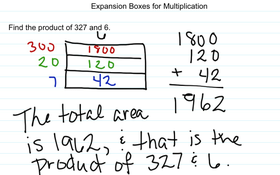 Expansion Boxes for Multiplication
Find the product of 327 and 6.
6
300 1800
20 120
7 42
1800
120
+ 42
1962
The total area
is 1962, & that is the
product of 327 & 6.